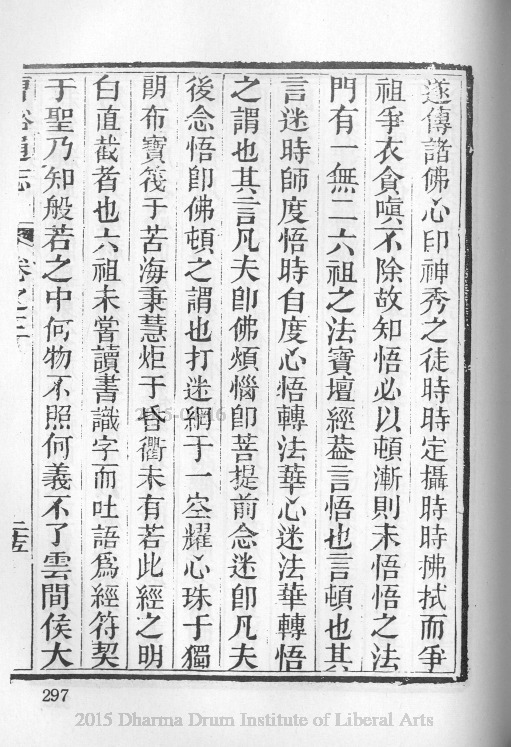 遂傳諸佛心印神秀之徒時時定攝時時拂拭而爭
祖爭衣貪嗔不除故知悟必以頓漸則未悟悟之法
門有一無二六祖之法寶壇經葢言悟也言頓也其
言迷時師度悟時自度心悟轉法華心迷法華轉悟
之謂也其言凡夫卽佛煩惱卽菩提前念迷卽凡夫
後念悟卽佛頓之謂也打迷網于一空耀心珠于獨
朗布寶筏于苦海秉慧炬于昏衢未有若此經之明
白直截者也六祖未嘗讀書識字而吐語爲經符契
于聖乃知般若之中何物不照何義不了雲間侯大
曹溪通志 卷之三 二五
297
2015 Dharma Drum Institute of Liberal Arts